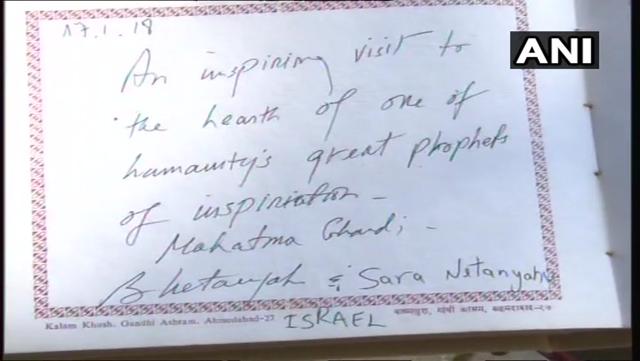 17.1.18
ANI
An inspiring visit to
the hearth of one of
humanity's great prophets
of inspiration -
Mahatma Ghandi -
B Netanyahu & Sara Netanyahu
Kalam Khush, Gandhi Ashram, Ahmedabad-27
ISRAEL
कलमखुश, गांधी आश्रम, अहमदाबाद-२७